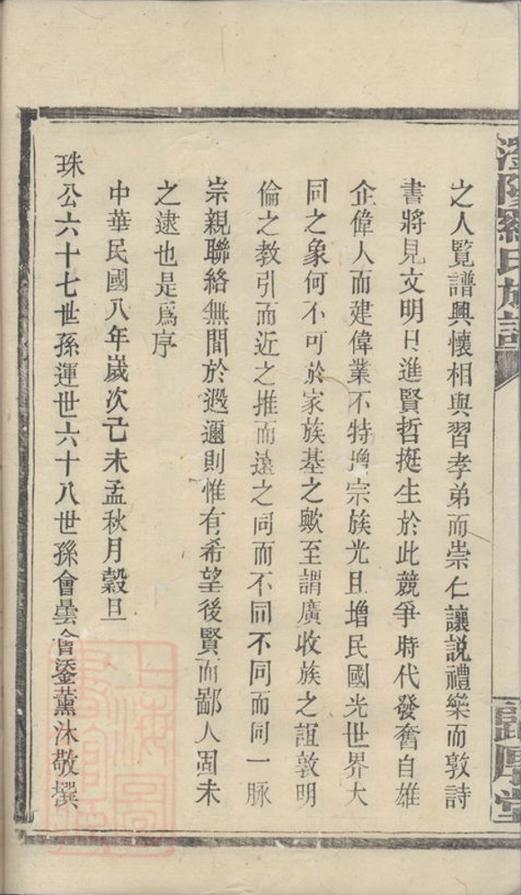 澧陽羅氏族譜
歸厚堂
之人覧譜興懷相與習孝弟而崇仁讓説禮樂而敦詩
書將見文明日進賢哲挺生於此競爭時代發奮自雄
企偉人而建偉業不特增宗族光且增民國光世界大
同之象何不可於家族基之歟至謂廣收族之誼敦明
倫之教引而近之推而遠之同而不同不同而同一脉
宗親聯絡無間於遐邇則惟有希望後賢而鄙人固未
之逮也是爲序
中華民國八年嵗次己未孟秋月穀旦
珠公六十七世孫運世六十八世孫會曇會鋈薰沐敬撰
上海圖